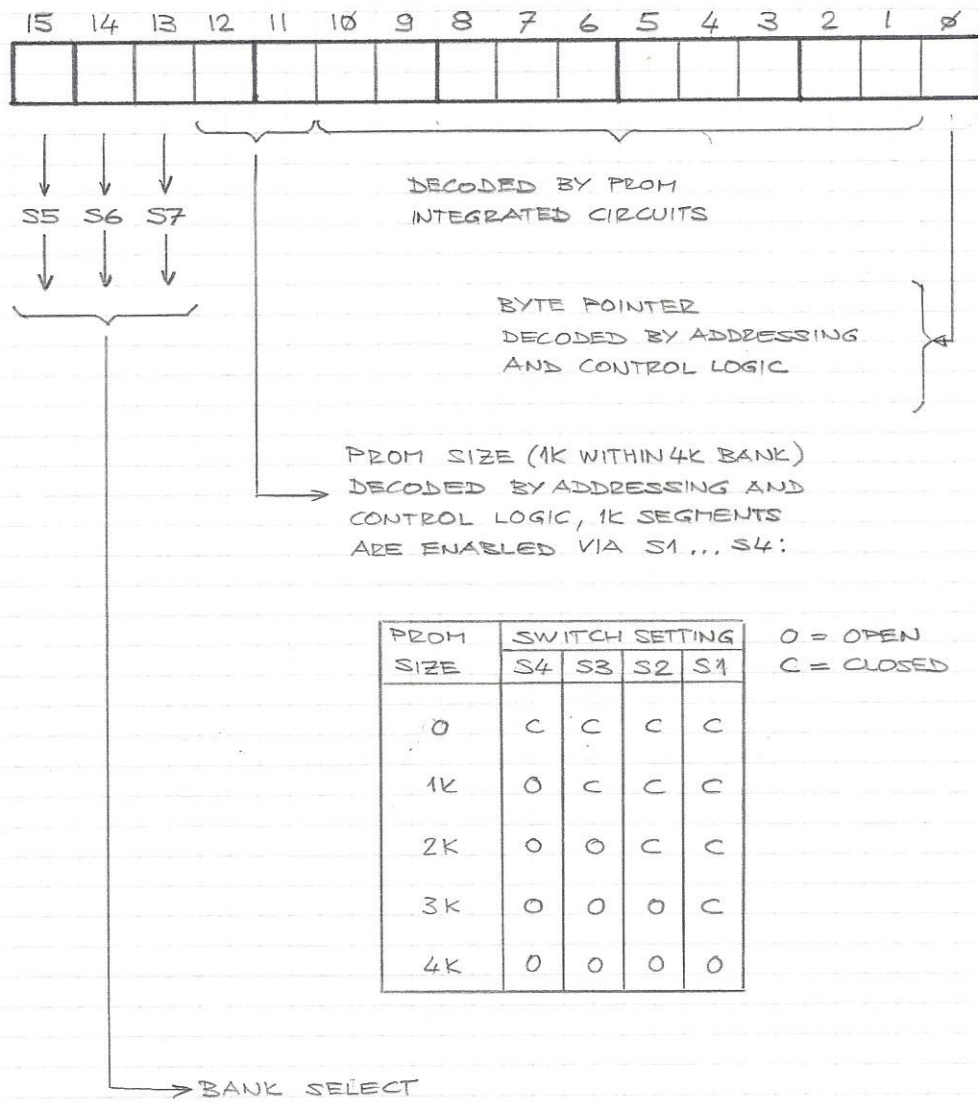 15 14 13 12 11 1Ø 9 8 7 6 5 4 3 2 1 Ø
S5 S6 S7
DECODED BY PROM
INTEGRATED CIRCUITS
BYTE POINTER
DECODED BY ADDRESSING
AND CONTROL LOGIC
PROM SIZE (1K WITHIN 4K BANK)
DECODED BY ADDRESSING AND
CONTROL LOGIC, 1K SEGMENTS
ARE ENABLED VIA S1 ... S4:
PROM SWITCH SETTING O = OPEN
SIZE S4 S3 S2 S1 C = CLOSED
0 C C C C
1K O C C C
2K O O C C
3K O O O C
4K O O O O
BANK SELECT